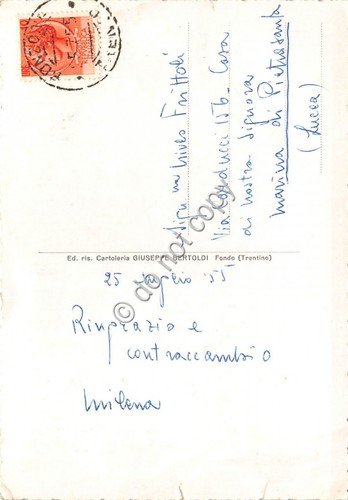 Sig.na Nives Frittoli
Via Carducci 156 - Casa
di nostra Signora
Marina di Pietrasanta
(Lucca)
Ed. ris. Cartoleria GIUSEPPE BERTOLDI Fondo (Trentino)
25 luglio '55
Ringrazio e
contraccambio
Milena
© do not copy